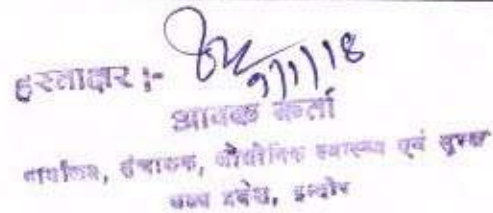 हस्ताक्षर :-
9/1/18
आवक कर्ता
कार्यालय, संचालक, औद्योगिक स्वास्थ्य एवं सुरक्षा
मध्य प्रदेश, इन्दौर